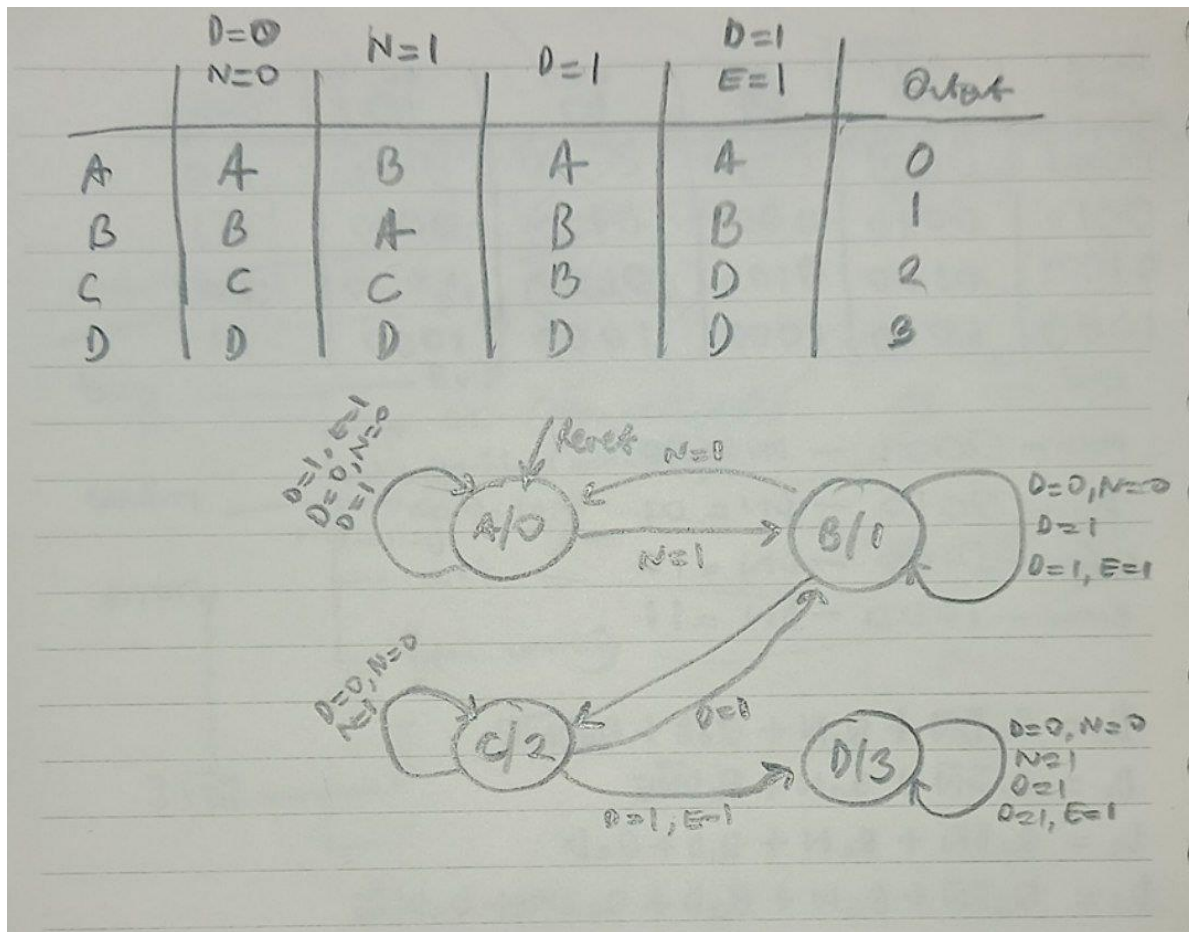 D=0 N=1 D=1 D=1
N=0 E=1
A A B A A 0
B B A B B 1
C C C B D 2
D D D D D 3
D=1, E=1
D=0, N=0
D=1
Reset
N=1
A/0
N=1
B/1
D=0, N=0
D=1
D=1, E=1
D=0, N=0
N=1
C/2
D=1
D=1, E=1
D/3
D=0, N=0
N=1
D=1
D=1, E=1